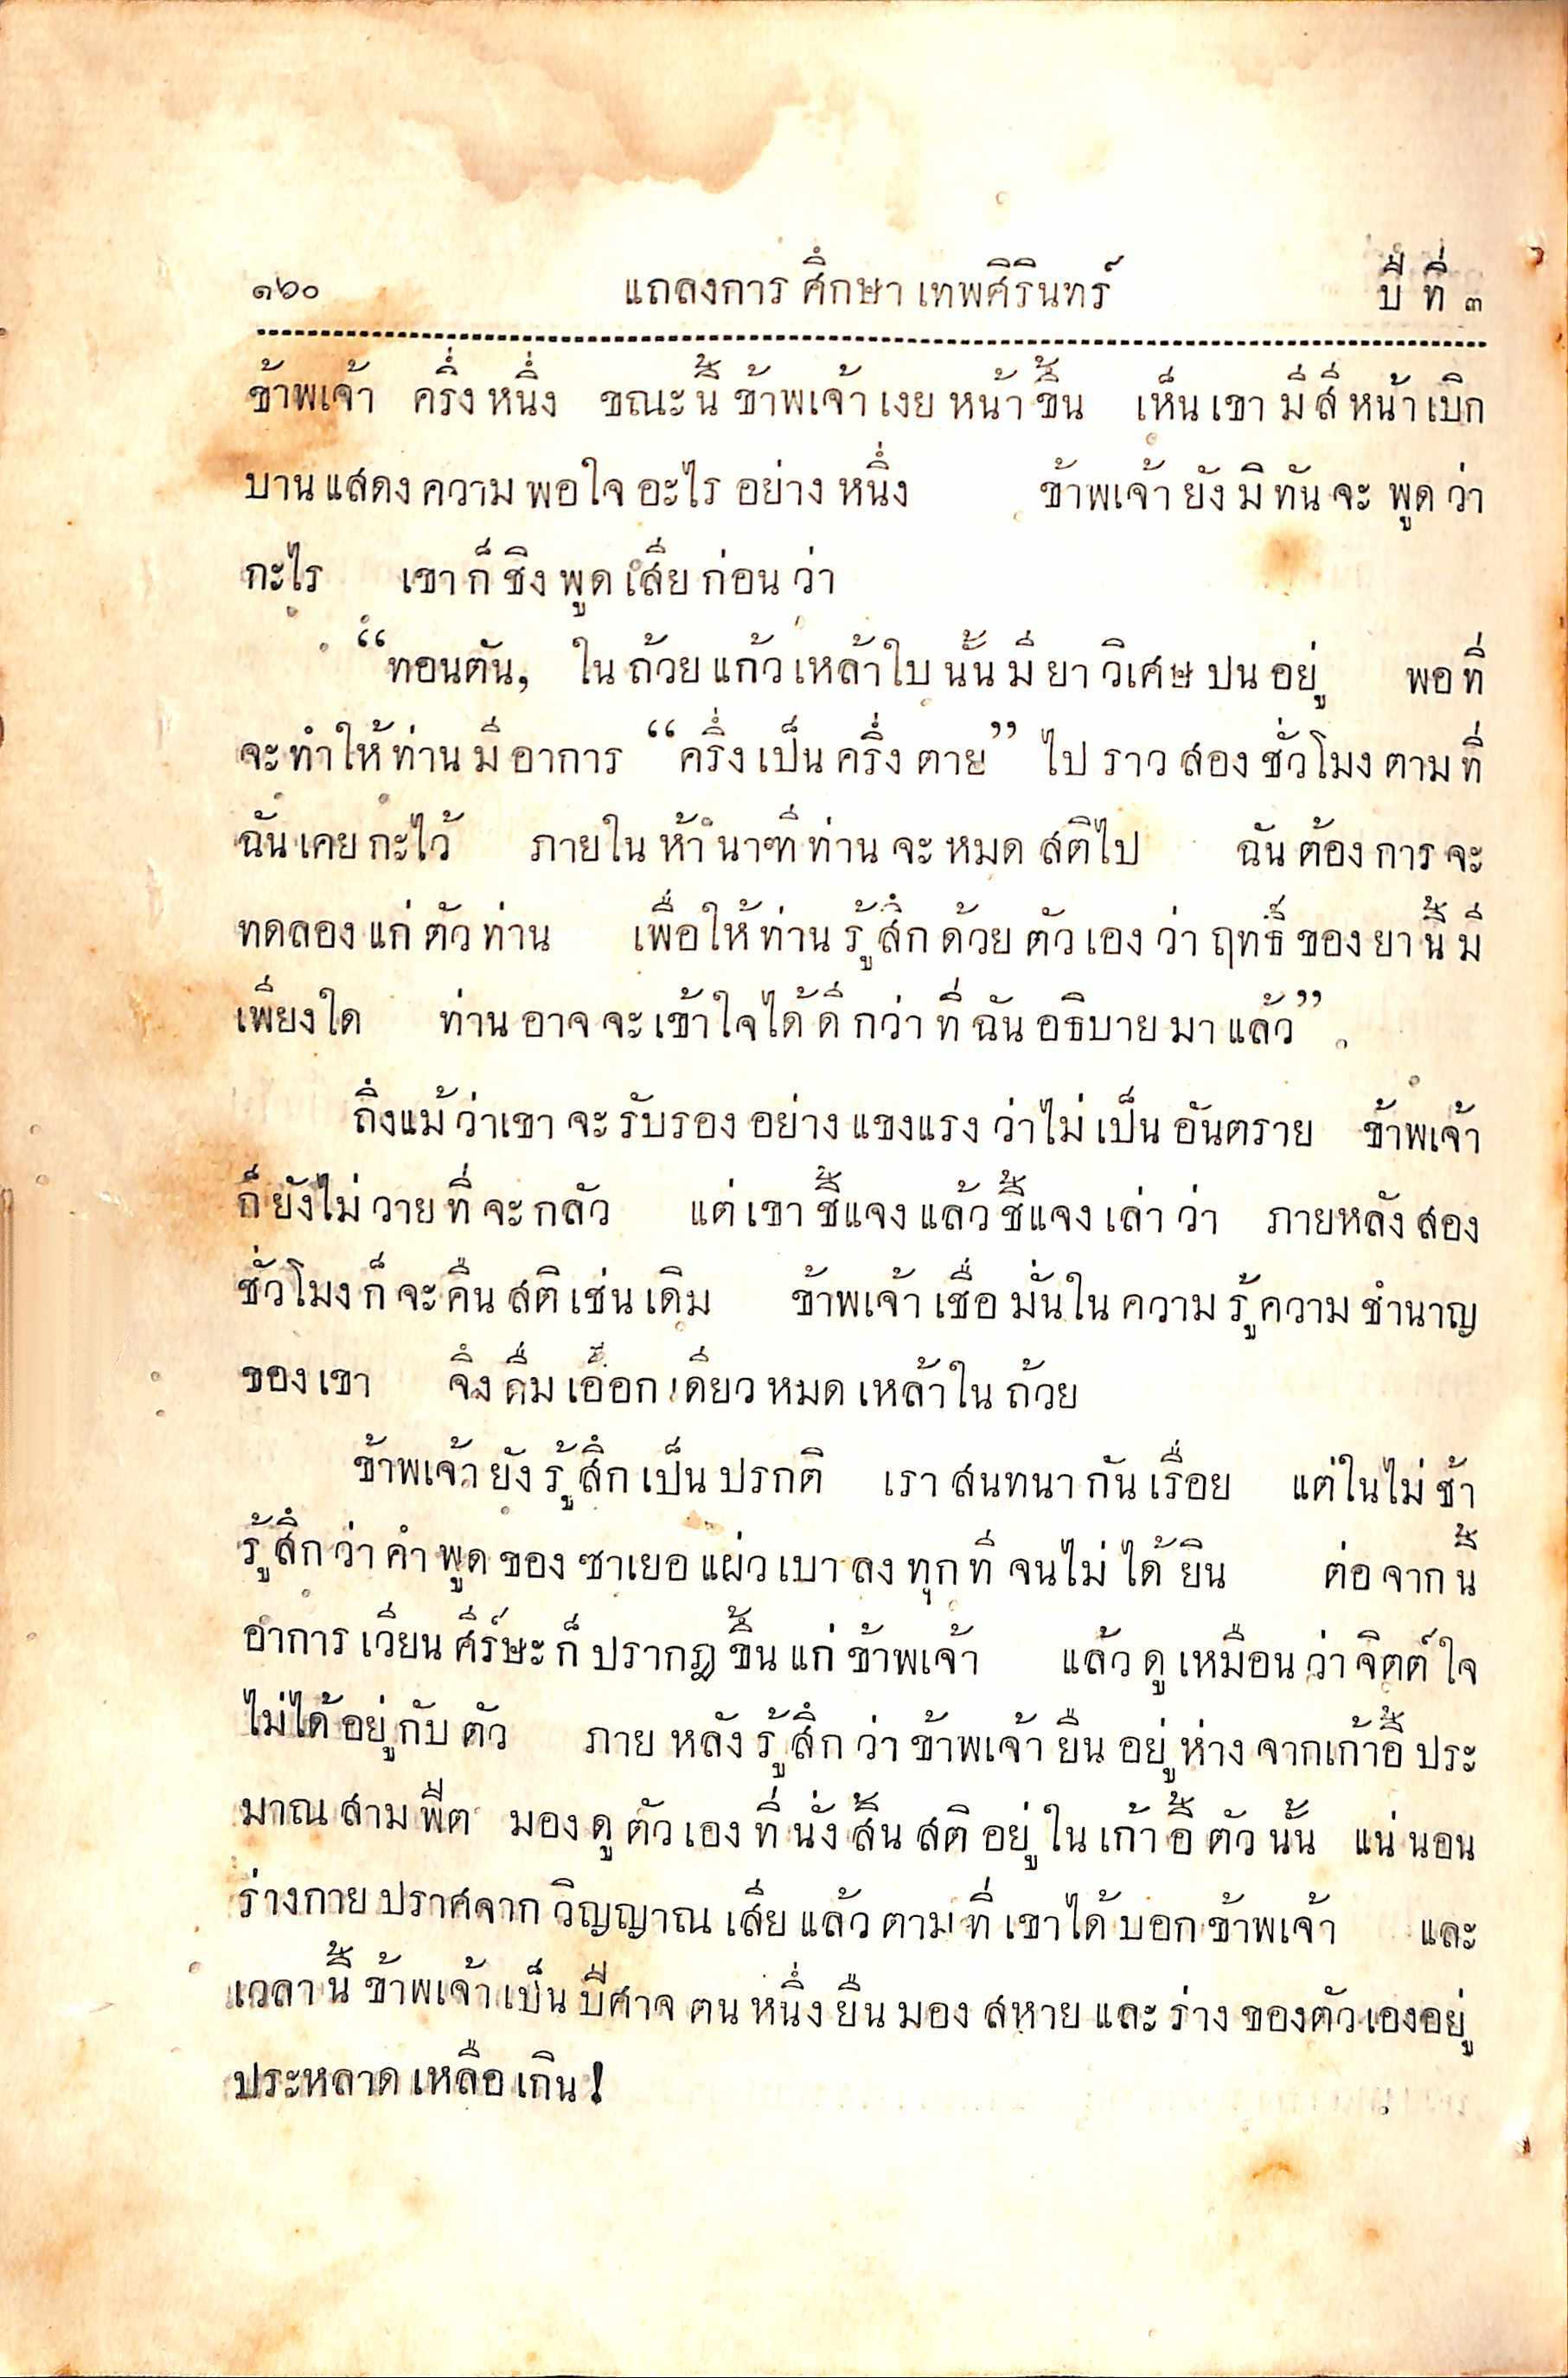 ๑๖๐ แถลงการ ศึกษา เทพศิรินทร์ ปี ที่ ๓
ข้าพเจ้า ครึ่ง หนึ่ง ขณะ นี้ ข้าพเจ้า เงย หน้า ขึ้น เห็น เขา มี สี หน้า เบิก
บาน แสดง ความ พอ ใจ อะไร อย่าง หนึ่ง ข้าพเจ้า ยัง มิ ทัน จะ พูด ว่า
กะไร เขา ก็ ชิง พูด เสีย ก่อน ว่า
“ทอนตัน, ใน ถ้วย แก้ว เหล้า ใบ นั้น มี ยา วิเศษ ปน อยู่ พอ ที่
จะ ทำ ให้ ท่าน มี อาการ “ครึ่ง เป็น ครึ่ง ตาย” ไป ราว สอง ชั่วโมง ตาม ที่
ฉัน เคย กะไว้ ภายใน ห้า นาฑี ท่าน จะ หมด สติไป ฉัน ต้อง การ จะ
ทดลอง แก่ ตัว ท่าน เพื่อ ให้ ท่าน รู้ สึก ด้วย ตัว เอง ว่า ฤทธิ์ ของ ยา นี้ มี
เพียงใด ท่าน อาจ จะ เข้า ใจ ได้ ดี กว่า ที่ ฉัน อธิบาย มา แล้ว”.
ถึงแม้ ว่าเขา จะ รับรอง อย่าง แขงแรง ว่าไม่ เป็น อันตราย ข้าพเจ้า
ก็ ยังไม่ วาย ที่ จะ กลัว แต่ เขา ชี้แจง แล้ว ชี้แจง เล่า ว่า ภายหลัง สอง
ชั่วโมง ก็ จะ คืน สติ เช่น เดิม ข้าพเจ้า เชื่อ มั่นใน ความ รู้ ความ ชำนาญ
ของ เขา จึง ดื่ม เอื๊อก เดียว หมด เหล้า ใน ถ้วย
ข้าพเจ้า ยัง รู้ สึก เป็น ปรกติ เรา สนทนา กัน เรื่อย แต่ ในไม่ ช้า
รู้ สึก ว่า คำ พูด ของ ซาเยอ แผ่ว เบา ลง ทุก ที จนไม่ ได้ ยิน ต่อ จาก นี้
อาการ เวียน ศีร์ษะ ก็ ปรากฏ ขึ้น แก่ ข้าพเจ้า แล้ว ดู เหมือน ว่า จิตต์ ใจ
ไม่ได้ อยู่ กับ ตัว ภาย หลัง รู้ สึก ว่า ข้าพเจ้า ยืน อยู่ ห่าง จากเก้าอี้ ประ
มาณ สาม ฟีต มอง ดู ตัว เอง ที่ นั่ง สิ้น สติ อยู่ ใน เก้า อี้ ตัว นั้น แน่ นอน
ร่างกาย ปราศจาก วิญญาณ เสีย แล้ว ตาม ที่ เขา ได้ บอก ข้าพเจ้า และ
เวลา นี้ ข้าพเจ้า เป็น ปีศาจ ตน หนึ่ง ยืน มอง สหาย และ ร่าง ของ ตัว เอง อยู่
ประหลาด เหลือ เกิน!